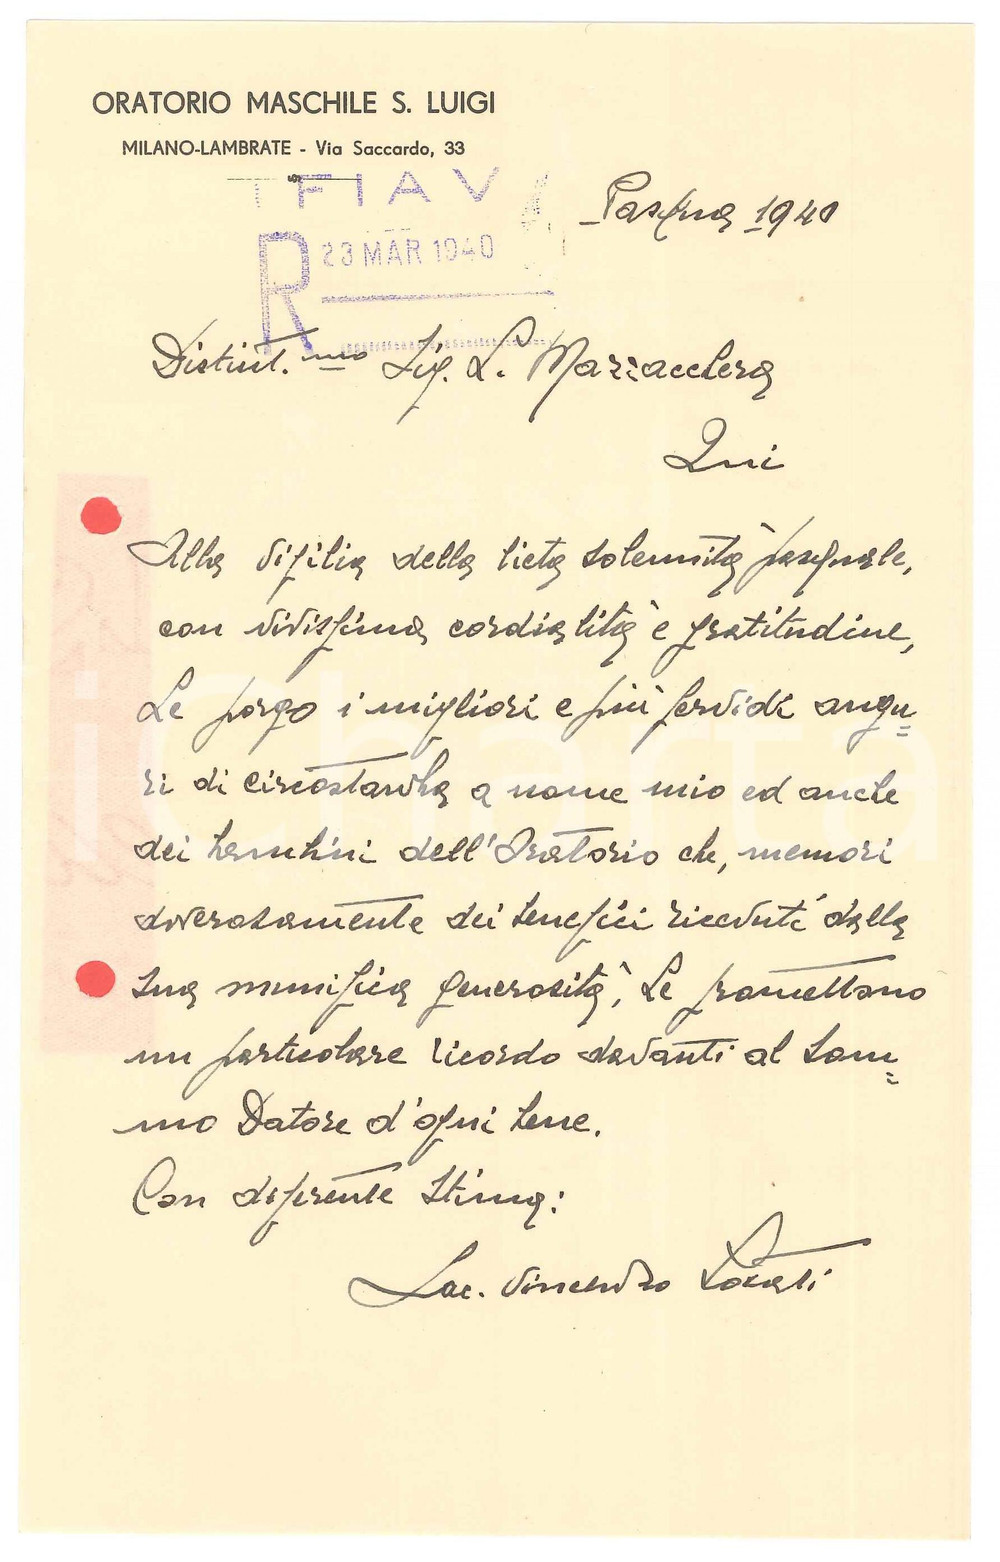 ORATORIO MASCHILE S. LUIGI
MILANO-LAMBRATE - Via Saccardo, 33
FIAV
R 23 MAR 1940
Pasqua 1940
Distint.mo Sig. L. Mazzacchera
Qui
Alla vigilia della lieta solennità pasquale,
con vivissima cordialità e gratitudine,
Le porgo i migliori e più fervidi augu=
ri di circostanza a nome mio ed anche
dei bambini dell'Oratorio che, memori
doverosamente dei benefici ricevuti dalla
Sua munifica generosità, Le promettono
un particolare ricordo davanti al Som=
mo Datore d'ogni bene.
Con deferente stima:
Sac. Vincenzo
iCharta